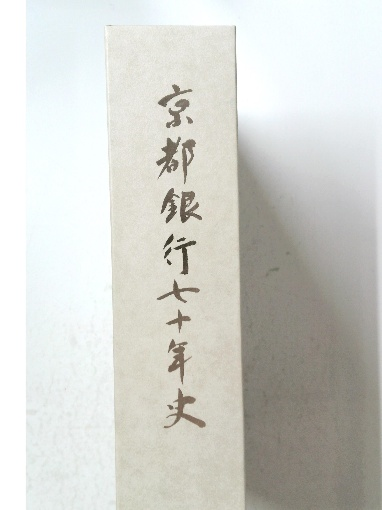 京都銀行七十年史